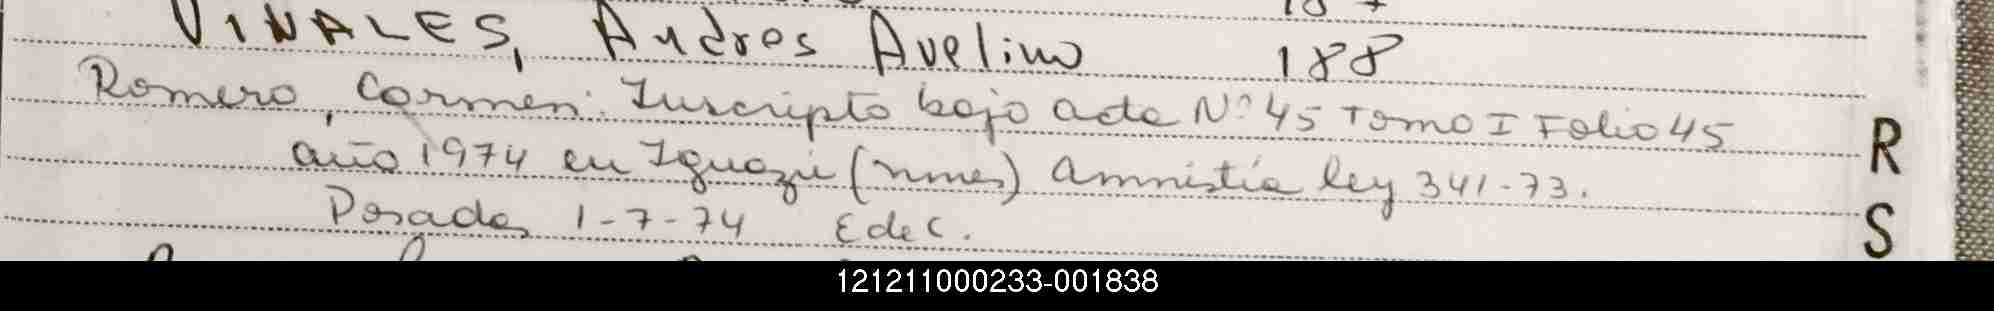 VIÑALES, Andres Avelino 188
Romero, Carmen: Inscripto bajo acta Nº 45 Tomo I Folio 45
R
año 1974 en Iguazú (mnes) Amnistía ley 341-73.
Posadas 1-7-74 E de C.
S
121211000233-001838